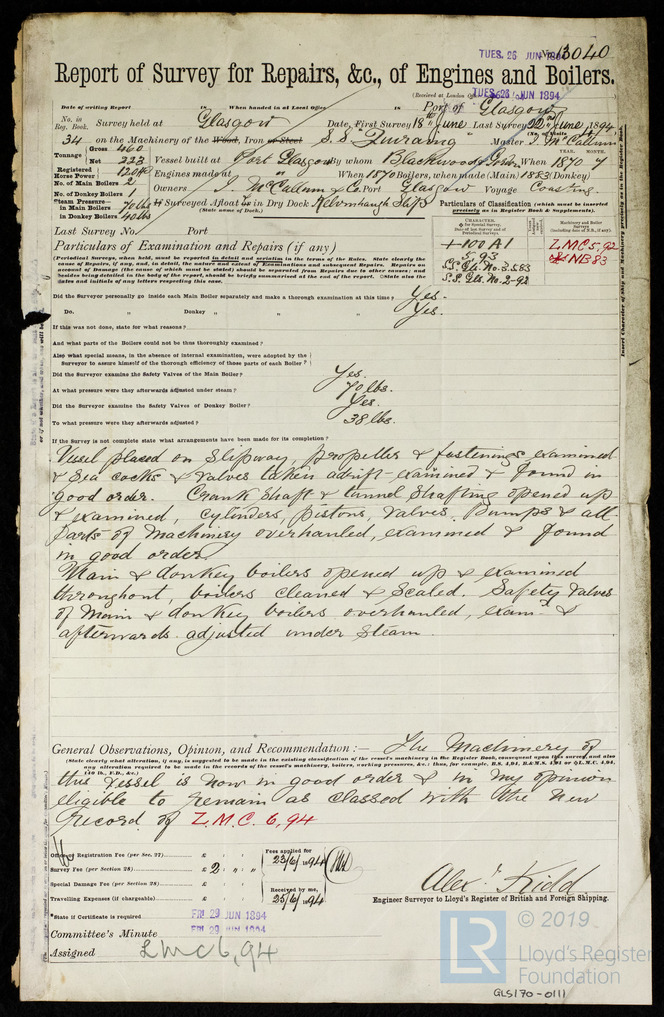 TUES. 26 JUN 1894
No. 13040
Report of Survey for Repairs, &c., of Engines and Boilers.
(Received at London Office TUES. 26 JUN 1894
Date of writing Report 18 When handed in at Local Office 18 Port of Glasgow
No. in Reg. Book. Survey held at Glasgow Date, First Survey 18th June Last Survey 22nd June 1894
34 on the Machinery of the Wood, Iron or Steel S.S. "Quiraing" Master J. McCallum
Tonnage Gross 460 Net 223 Vessel built at Port Glasgow By whom Blackwood & Gordon When 1870 7
YEAR. MONTH.
Registered Horse Power 120 Engines made at " When 1870 Boilers, when made (Main) 1883 (Donkey)
No. of Main Boilers 2
No. of Donkey Boilers 1 Owners J. McCallum & Co. Port Glasgow Voyage Coasting.
Steam Pressure in Main Boilers 70 lbs If Surveyed Afloat or in Dry Dock Kelvinhaugh Slip
in Donkey Boilers 40 lbs (State name of Dock.)
Particulars of Classification (which must be inserted precisely as in Register Book & Supplements).
Last Survey No. Port
Particulars of Examination and Repairs (if any)
+100A1
5,93
S.S. Gls. No. 3-5,83
S.S. Gls. No. 2-92
L.M.C. 5,92
NB 83
(Periodical Surveys, when held, must be reported in detail and seriatim in the terms of the Rules. State clearly the
cause of Repairs, if any, and, in detail, the nature and extent of Examinations and subsequent Repairs. Repairs on
account of Damage (the cause of which must be stated) should be separated from Repairs due to other causes; and
besides being detailed in the body of the report, should be briefly summarised at the end of the report. State also the
dates and initials of any letters respecting this case.
Did the Surveyor personally go inside each Main Boiler separately and make a thorough examination at this time? Yes.
Do. " Donkey " " " Yes.
If this was not done, state for what reasons?
And what parts of the Boilers could not be thus thoroughly examined?
Also what special means, in the absence of internal examination, were adopted by the
Surveyor to assure himself of the thorough efficiency of those parts of each Boiler?
Did the Surveyor examine the Safety Valves of the Main Boiler? Yes.
At what pressure were they afterwards adjusted under steam? 70 lbs.
Did the Surveyor examine the Safety Valves of Donkey Boiler? Yes.
To what pressure were they afterwards adjusted? 38 lbs.
If the Survey is not complete state what arrangements have been made for its completion?
Vessel placed on Slipway, propeller & fastenings examined
& Sea cocks & valves taken adrift examined & found in
good order. Crank Shaft & tunnel Shafting opened up
& examined, cylinders, pistons, valves, Pumps & all
parts of Machinery overhauled, examined & found
in good order.
Main & donkey boilers opened up & examined
throughout, boilers cleaned & scaled. Safety valves
of Main & donkey boilers overhauled, examd &
afterwards adjusted under Steam.
General Observations, Opinion, and Recommendation:— The Machinery of
(State clearly what alteration, if any, is suggested to be made in the existing classification of the vessel's machinery in the Register Book, consequent upon this survey, and also
any alteration required to be made in the records of the vessel's machinery, boilers, working pressures, &c.: thus, for example, B.S. 4,94, B.&M.S. 4,94 or L.M.C. 4,94,
140 lb., F.D., &c.)
this vessel is now in good order & in my opinion
eligible to remain as classed with the new
record of L.M.C. 6,94
Office or Registration Fee (per Sec. 27) £
Survey Fee (per Section 28) £ 2 " "
Special Damage Fee (per Section 28) £
Travelling Expenses (if chargeable) £
Fees applied for
23/6/1894
Received by me,
25/6/1894
Alexr. Kidd
Engineer Surveyor to Lloyd's Register of British and Foreign Shipping.
*State if Certificate is required
FRI 29 JUN 1894
Committee's Minute FRI 29 JUN 1894
Assigned LMC 6,94
© 2019
LR
Lloyd's Register
Foundation
GLS170-0111